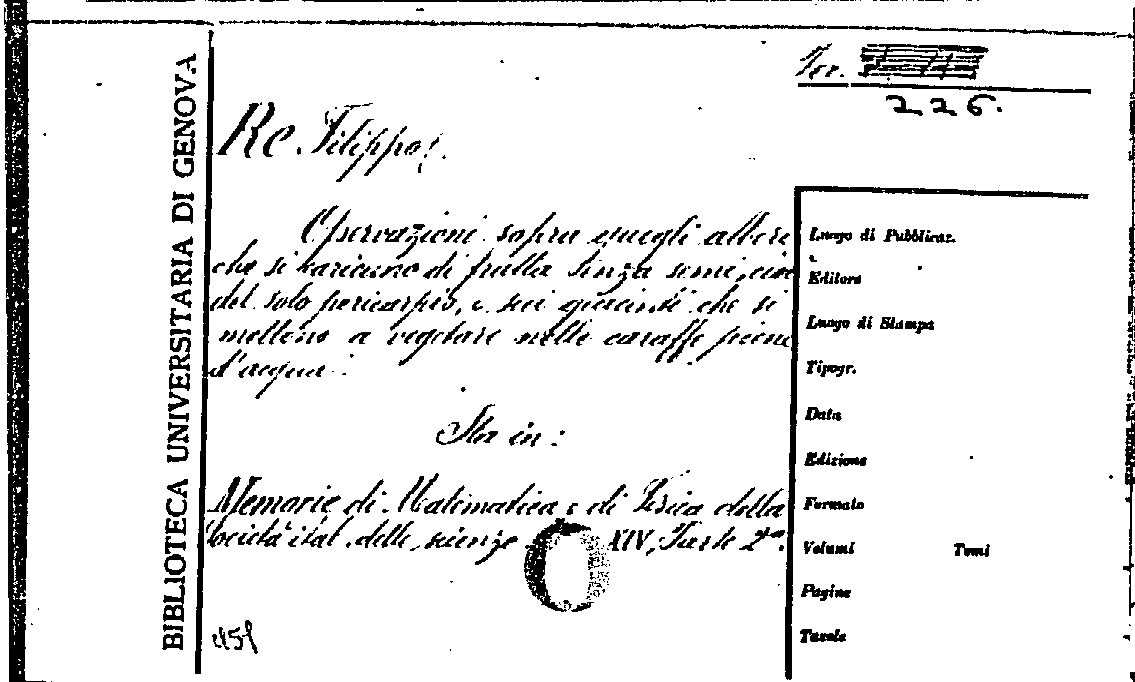 BIBLIOTECA UNIVERSITARIA DI GENOVA
Per.
226.
Re Filippo.
Osservazioni sopra quegli alberi
che si caricano di frutta senza semi, cioè
del solo pericarpio, e sui giacinti che si
mettono a vegetare nelle caraffe piene
d'acqua.
Sta in:
Memorie di Matematica e di Fisica della
Società ital. delle scienze XIV, Parte 2ª.
Luogo di Pubblicaz.
Editore
Luogo di Stampa
Tipogr.
Data
Edizione
Formato
Volumi Tomi
Pagine
Tavole